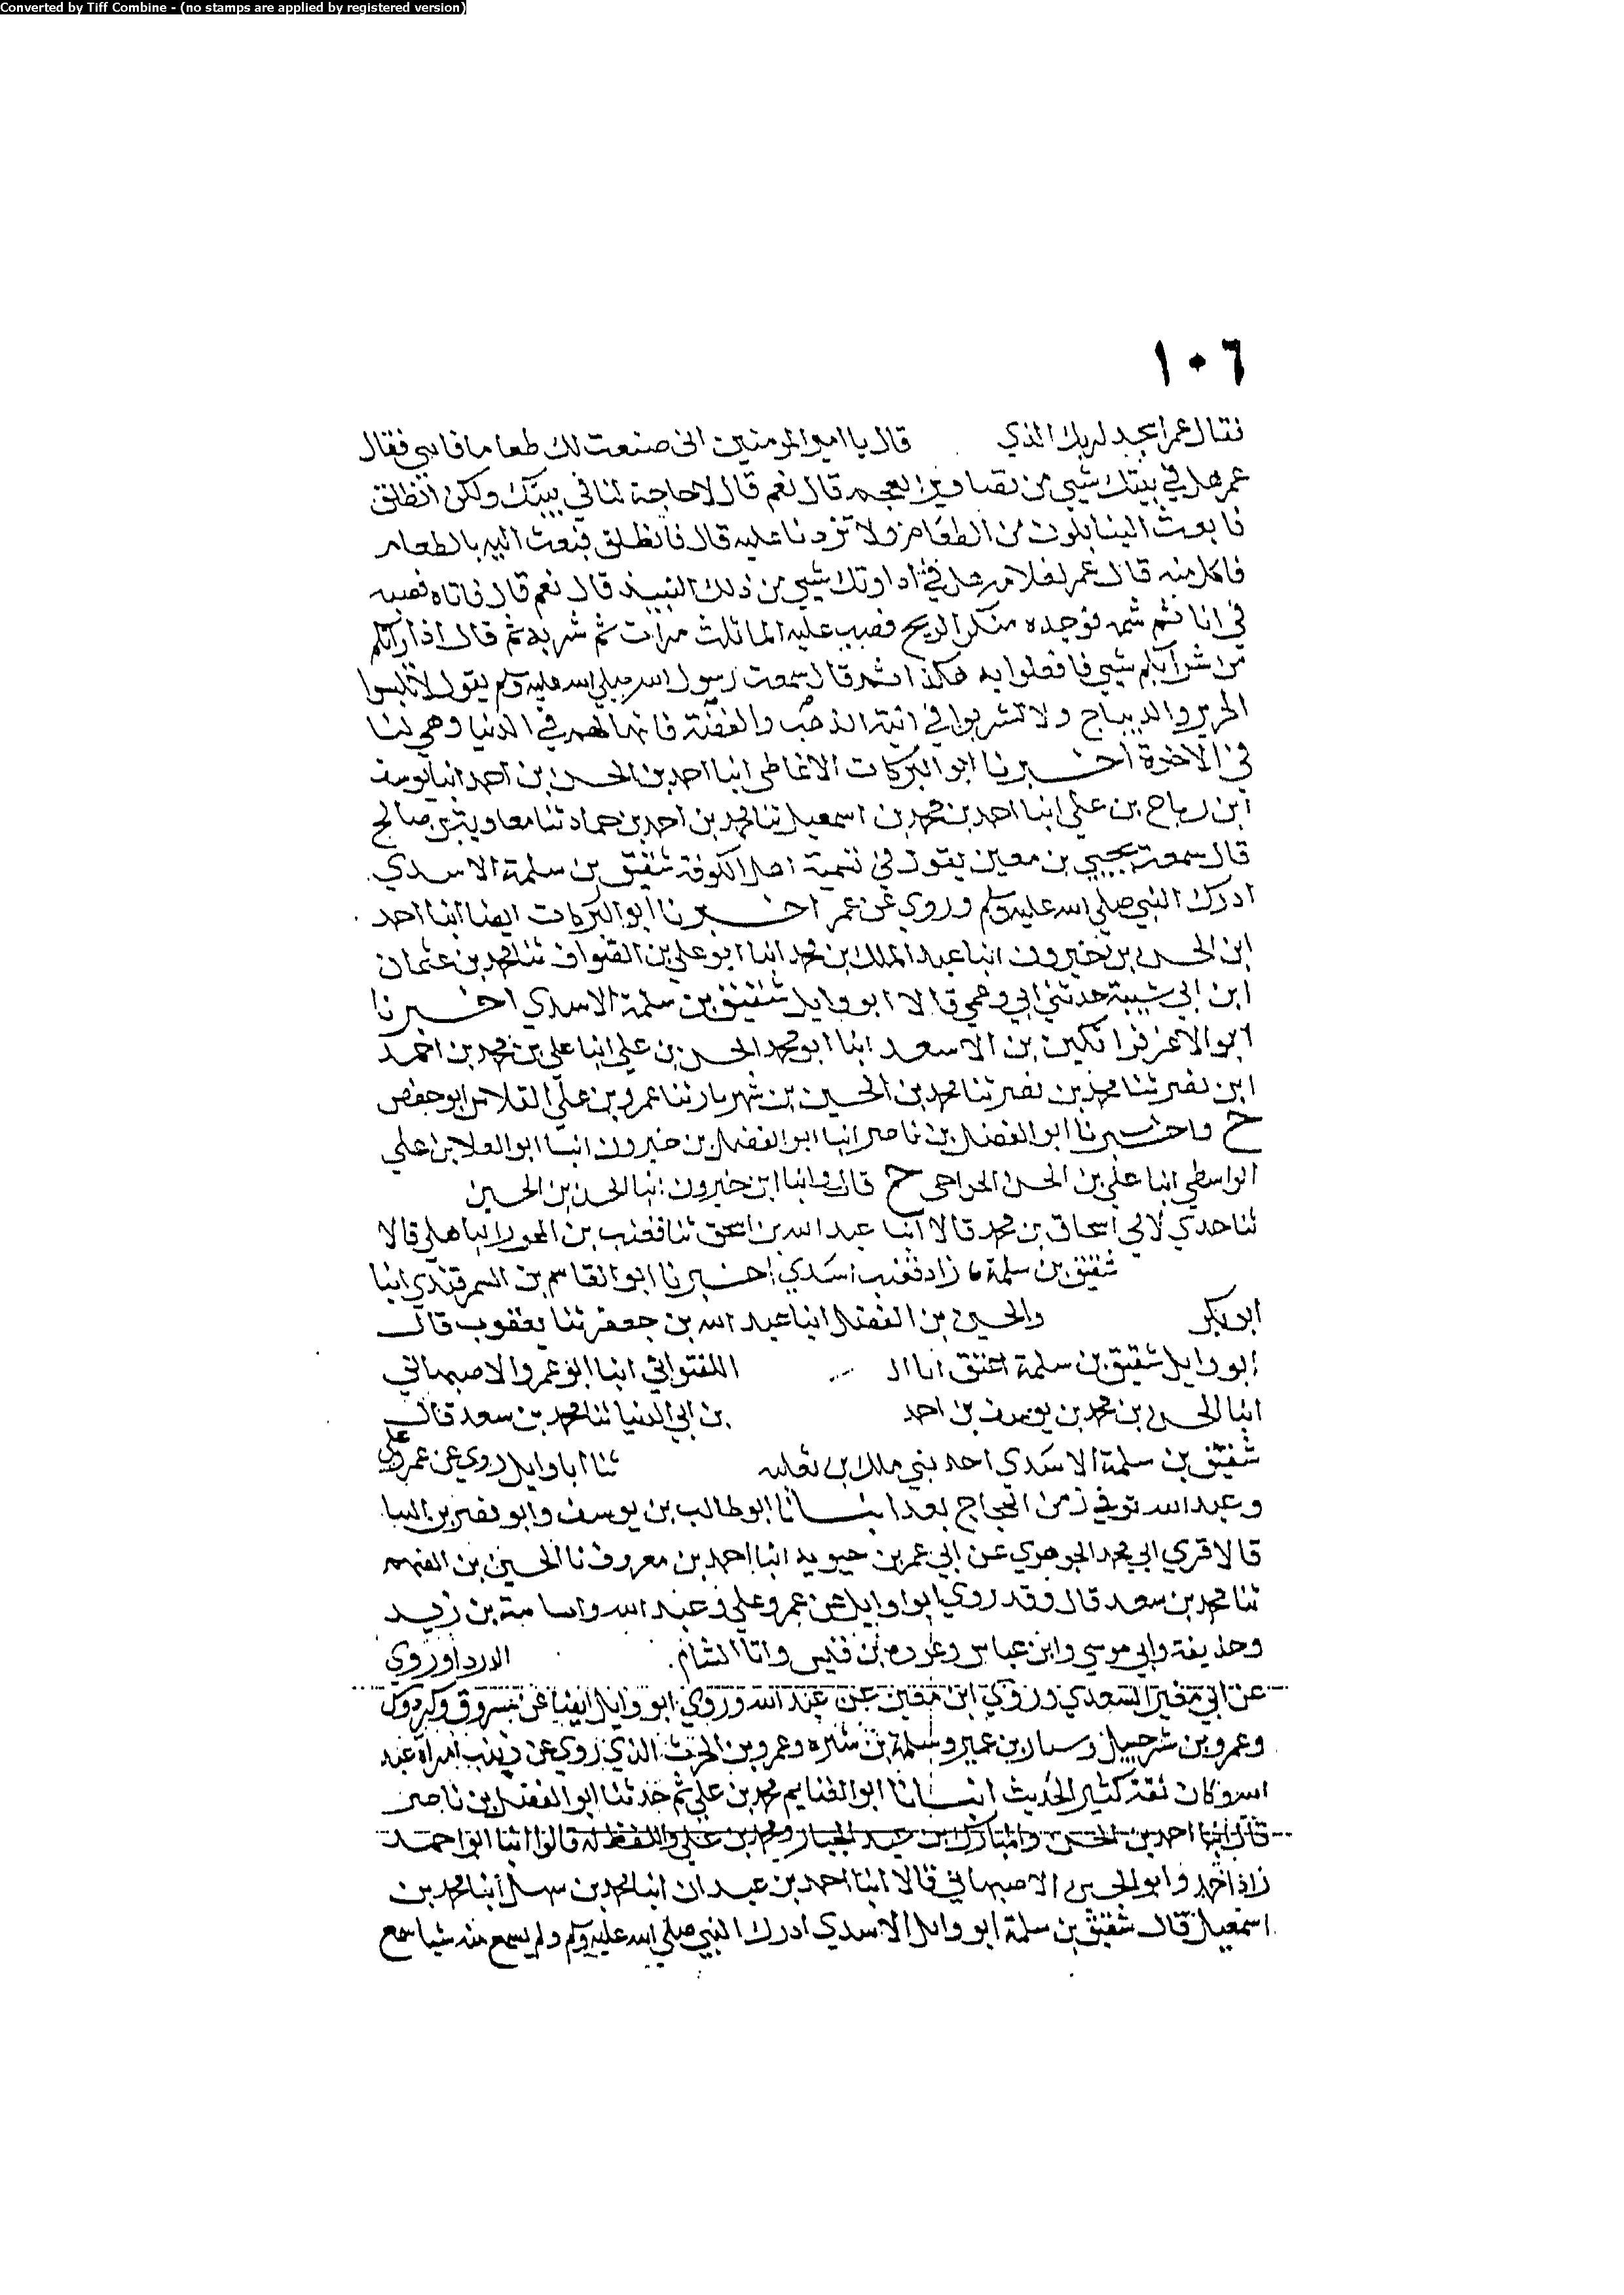 Converted by Tiff Combine - (no stamps are applied by registered version)
١٠٦
فقال عمر اسجد لربك الذي قال يا امير المومنين اني صنعت لك طعاما فاتني فقال
عمر هل في بيتك شيي من تصاوير العجم قال نعم قال لا حاجة لنا في بيتك ولكن انطلق
فابعث الينا بلون من الطعام ولا تزدنا عليه قال فانطلق فبعث اليه بالطعام
فاكل منه قال عمر لغلامه هل في اداوتك شيي من ذلك النبيذ قال نعم قال فاتاه فصبه
في انا ثم شمه فوجده منكر الريح فصب عليه الما ثلث مرات ثم شربه ثم قال اذا رابكم
من شرابكم شيي فافعلوا به هكذا ثم قال سمعت رسول الله صلي الله عليه وسلم يقول لا تلبسوا
الحرير والديباج ولا تشربوا في انية الذهب والفضة فانها لهم في الدنيا وهي لنا
في الاخرة اخبرنا ابو البركات الانماطي انبا احمد بن الحسن بن احمد انبا يوسف
ابن رباح بن علي انبا احمد بن محمد بن اسمعيل ثنا محمد بن احمد بن حماد ثنا معاوية بن صالح
قال سمعت يحيي بن معين يقول في تسمية اهل الكوفة شقيق بن سلمة الاسدي
ادرك النبي صلي الله عليه وسلم وروي عن عمر اخبرنا ابو البركات ايضا انبا احمد
ابن الحسن بن خيرون انبا عبد الملك بن محمد انبا ابو علي بن الصواف ثنا محمد بن عثمان
ابن ابي شيبة حدثني ابي وعمي قالا ابو وايل شقيق بن سلمة الاسدي اخبرنا
ابو الاعز قراتكين بن الاسعد انبا ابو محمد الحسن بن علي انبا علي بن محمد بن احمد
ابن نصر ثنا محمد بن نصر ثنا محمد بن الحسين بن شهريار ثنا عمرو بن علي الفلاس ابو حفص
ح واخبرنا ابو الفضل بن ناصر انبا ابو الفضل بن خيرون انبا ابو العلا بن علي
الواسطي انبا علي بن الحسن الجراحي ح قال وانبا ابن خيرون انبا الحسن بن الحسين
ثنا جدي لابي اسحاق بن محمد قالا انبا عبد الله بن اسحق ثنا قعنب بن المحرر الباهلي قالا
شقيق بن سلمة زاد قعنب اسدي اخبرنا ابو القاسم بن السمرقندي انبا
ابو بكر والحسين بن الفضل انبا عبد الله بن جعفر ثنا يعقوب قال
ابو وايل شقيق بن سلمة اللفتواني انبا ابو عمرو الاصبهاني
انبا الحسن بن محمد بن يوسف بن احمد بن ابي الدنيا ثنا محمد بن سعد قال
شقيق بن سلمة الاسدي احد بني ملك بن ثعلبه ثنا ابا وايل روي عن عمر وعلي
وعبد الله توفي زمن الحجاج بعد انبانا ابو طالب بن يوسف وابو نصر بن البنا
قالا قري ابي محمد الجوهري عن ابي عمر بن حيويه انبا احمد بن معروف نا الحسين بن الفهم
ثنا محمد بن سعد قال وقد روي ابو وايل عن عمر وعلي وعبد الله واسامة بن زيد
وحذيفة وابي موسي وابن عباس وعزره بن قيس واتا الشام الدردا وروي
عن ابن معيز السعدي وروي ابن معيز عن عبد الله وروي ابو وايل ايضا عن مسروق وكردوس
وعمرو بن شرحبيل ويسار بن عمير وسلمة بن سبره وعمرو بن الحرث الذي روي عن زينب امراة عبد
الله وكان ثقة كثير الحديث انبانا ابو الغنايم محمد بن علي ثم حدثنا ابو الفضل بن ناصر
قال انبا احمد بن الحسن والمبارك بن عبد الجبار ومحمد بن علي واللفظ له قالوا انبا ابو احمد
زاد احمد وابو الحسين الاصبهاني قالا انبا احمد بن عبدان انبا محمد بن سهل انبا محمد بن
اسمعيل قال شقيق بن سلمة ابو وايل الاسدي ادرك النبي صلي الله عليه وسلم ولم يسمع منه شيا سمع